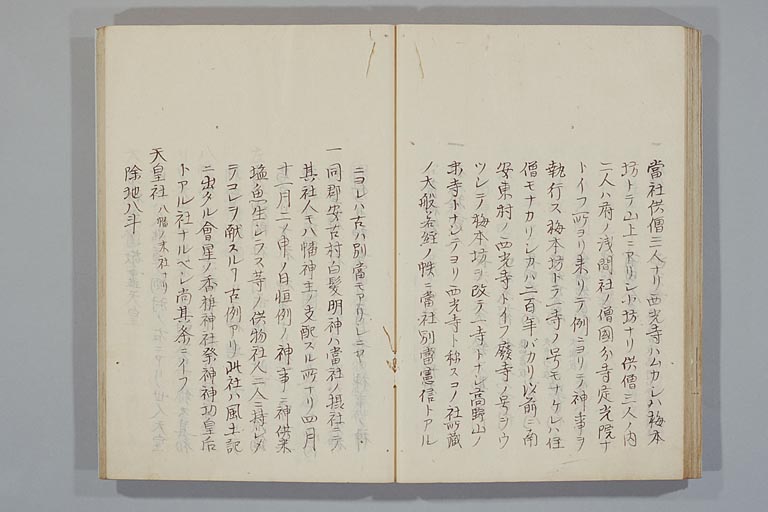 一當社供僧三人ナリ西光寺ハムカシハ梅本
坊トテ山上ニアリシ小坊ナリ供僧三人ノ内
二人ハ府ノ浅間社ノ僧國分寺定光院ナ
トイフ所ヨリ来リテ例ニヨリテ神事ヲ
執行ス梅本坊トテ一寺ノ号モナケレハ住
僧モナカリシカバ二百年バカリ以前ニ南
安東村ノ西光寺トイフ廢寺ノ号ヲウ
ツシテ梅本坊ヲ改テ一寺トナシ高野山ノ
末寺トナシテヨリ西光寺ト称スコノ社所藏
ノ大般若経ノ帙ニ當社別當憲信トアル
ニヨレハ古ハ別當モアリシニヤ
一同郡安古村白髪明神ハ當社ノ摂社ニテ
其社人モ八幡神主ノ支配スル所ナリ四月
十一月二ノ申ノ日恒例ノ神事ニ神供米
塩魚生シラス等ノ供物社人二人ニ持シメ
テコレヲ献スルヿ古例アリ此社ハ風土記
ニ出タル會星ノ香椎神社祭神神功皇后
トアル社ナルベシ尚其条ニイフ
天皇社 八幡ノ末社
除地八斗